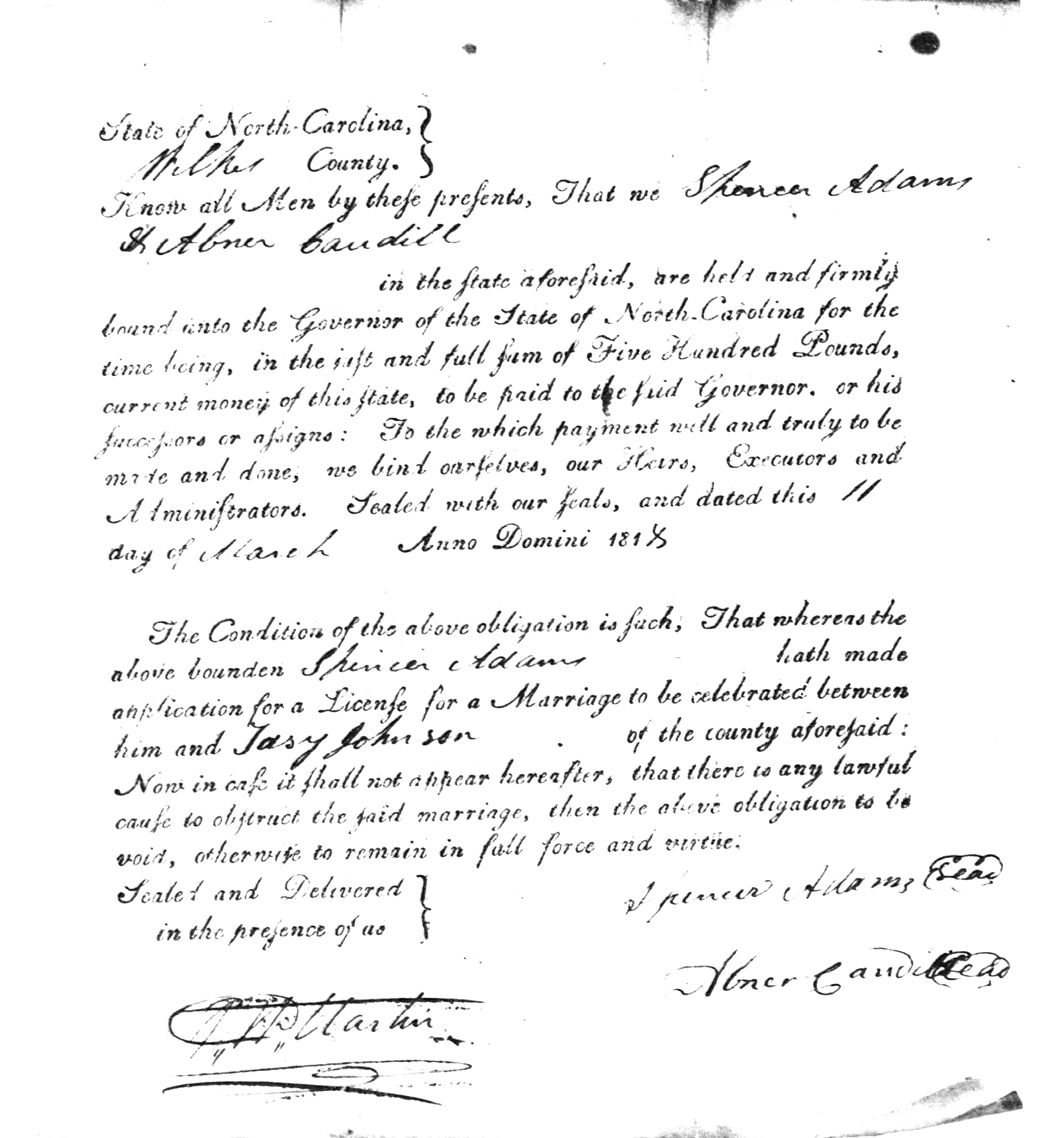 State of North-Carolina,
Wilkes County.
Know all Men by theſe preſents, That we Spencer Adams
& Abner Caudill
in the ſtate aforeſaid, are held and firmly
bound unto the Governor of the State of North-Carolina for the
time being, in the juſt and full ſum of Five Hundred Pounds,
current money of this ſtate, to be paid to the ſaid Governor. or his
ſucceſſors or aſſigns: To the which payment well and truly to be
made and done, we bind ourſelves, our Heirs, Executors and
Adminiſtrators. Sealed with our ſeals, and dated this 11
day of March Anno Domini 181
The Condition of the above obligation is ſuch, That whereas the
above bounden Spencer Adams hath made
application for a Licenſe for a Marriage to be celebrated between
him and Tasy Johnson of the county aforeſaid:
Now in caſe it ſhall not appear hereafter, that there is any lawful
cauſe to obſtruct the ſaid marriage, then the above obligation to be
void, otherwiſe to remain in full force and virtue.
Sealed and Delivered
in the preſence of us
Spencer Adams Seal
Abner Caudill Seal
Martin